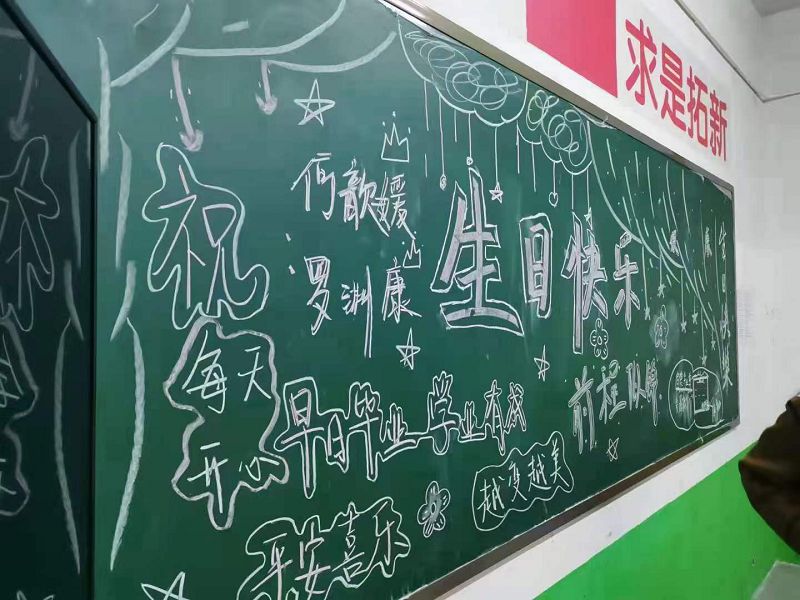 求是拓新
祝
何歆媛
罗渊康
生日快乐
每天
开心
早日毕业 学业有成
前程
平安喜乐
越变越美